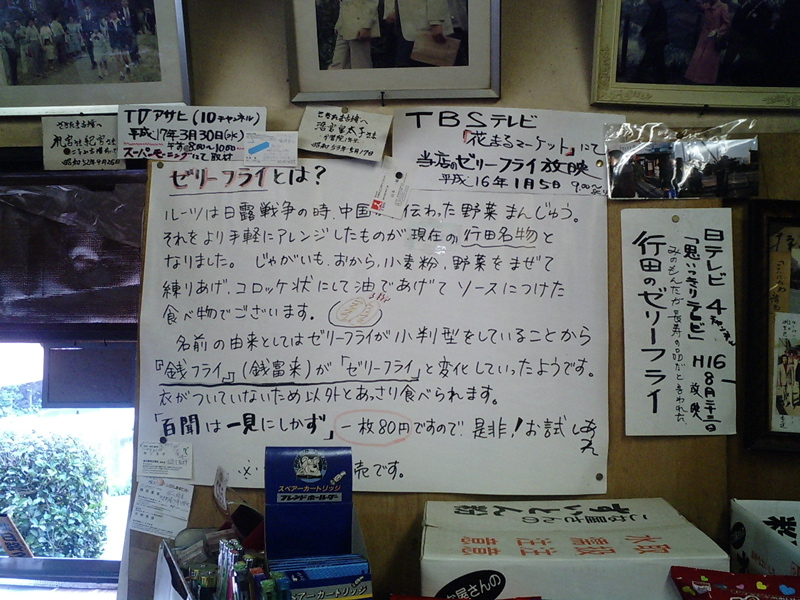 TVアサヒ(10チャンネル)
平成17年3月30日(水)
スーパーモーニングにて取材
昭和57年5月17日
TBSテレビ
「花まるマーケット」にて
当店のゼリーフライ放映
平成16年1月5日 9:00〜
ゼリーフライとは?
ルーツは日露戦争の時、中国 伝わった野菜まんじゅう。
それをより手軽にアレンジしたものが現在の行田名物と
なりました。じゃがいも、おから、小麦粉、野菜をまぜて
練りあげ、コロッケ状にして油であげて ソースにつけた
食べ物でございます。
名前の由来としてはゼリーフライが小判型をしていることから
『銭フライ』(銭富来)が「ゼリーフライ」と変化していったようです。
衣がついていないため以外とあっさり食べられます。
「百聞は一見にしかず」一枚80円ですので、是非!お試しあれ
売です。
日テレビ 4チャンネル
「思いっきりテレビ」 H16 8月二十三日 放映
みのもんたが長寿の品だと言われた
行田のゼリーフライ
スペアーカートリッジ
ブレンドホルダー
こな屋さんの
すいとん粉